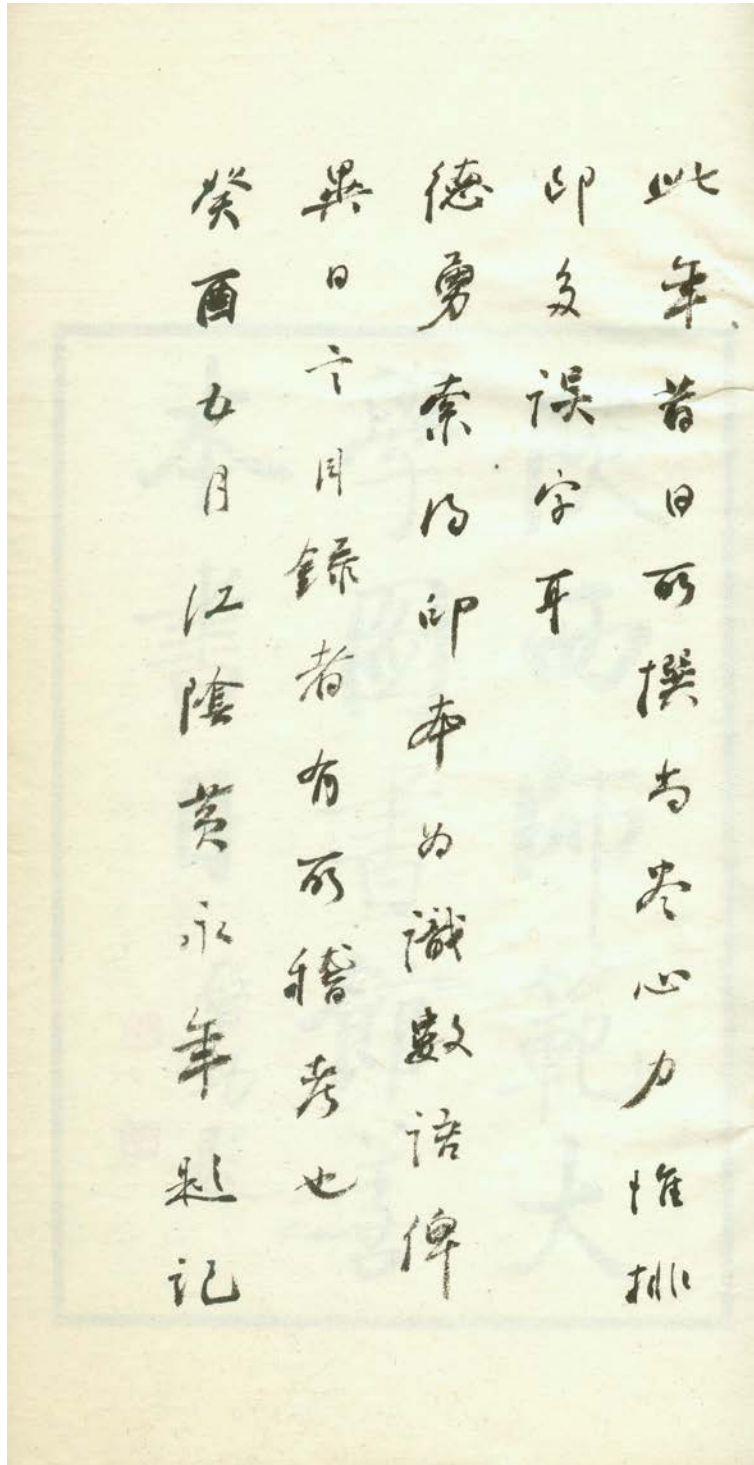 此年昔日所撰尚尽心力惟排
印多误字耳
德勇索得印本为識數语俾
異日言目録者有所稽考也
癸酉五月江陰黄永年题记